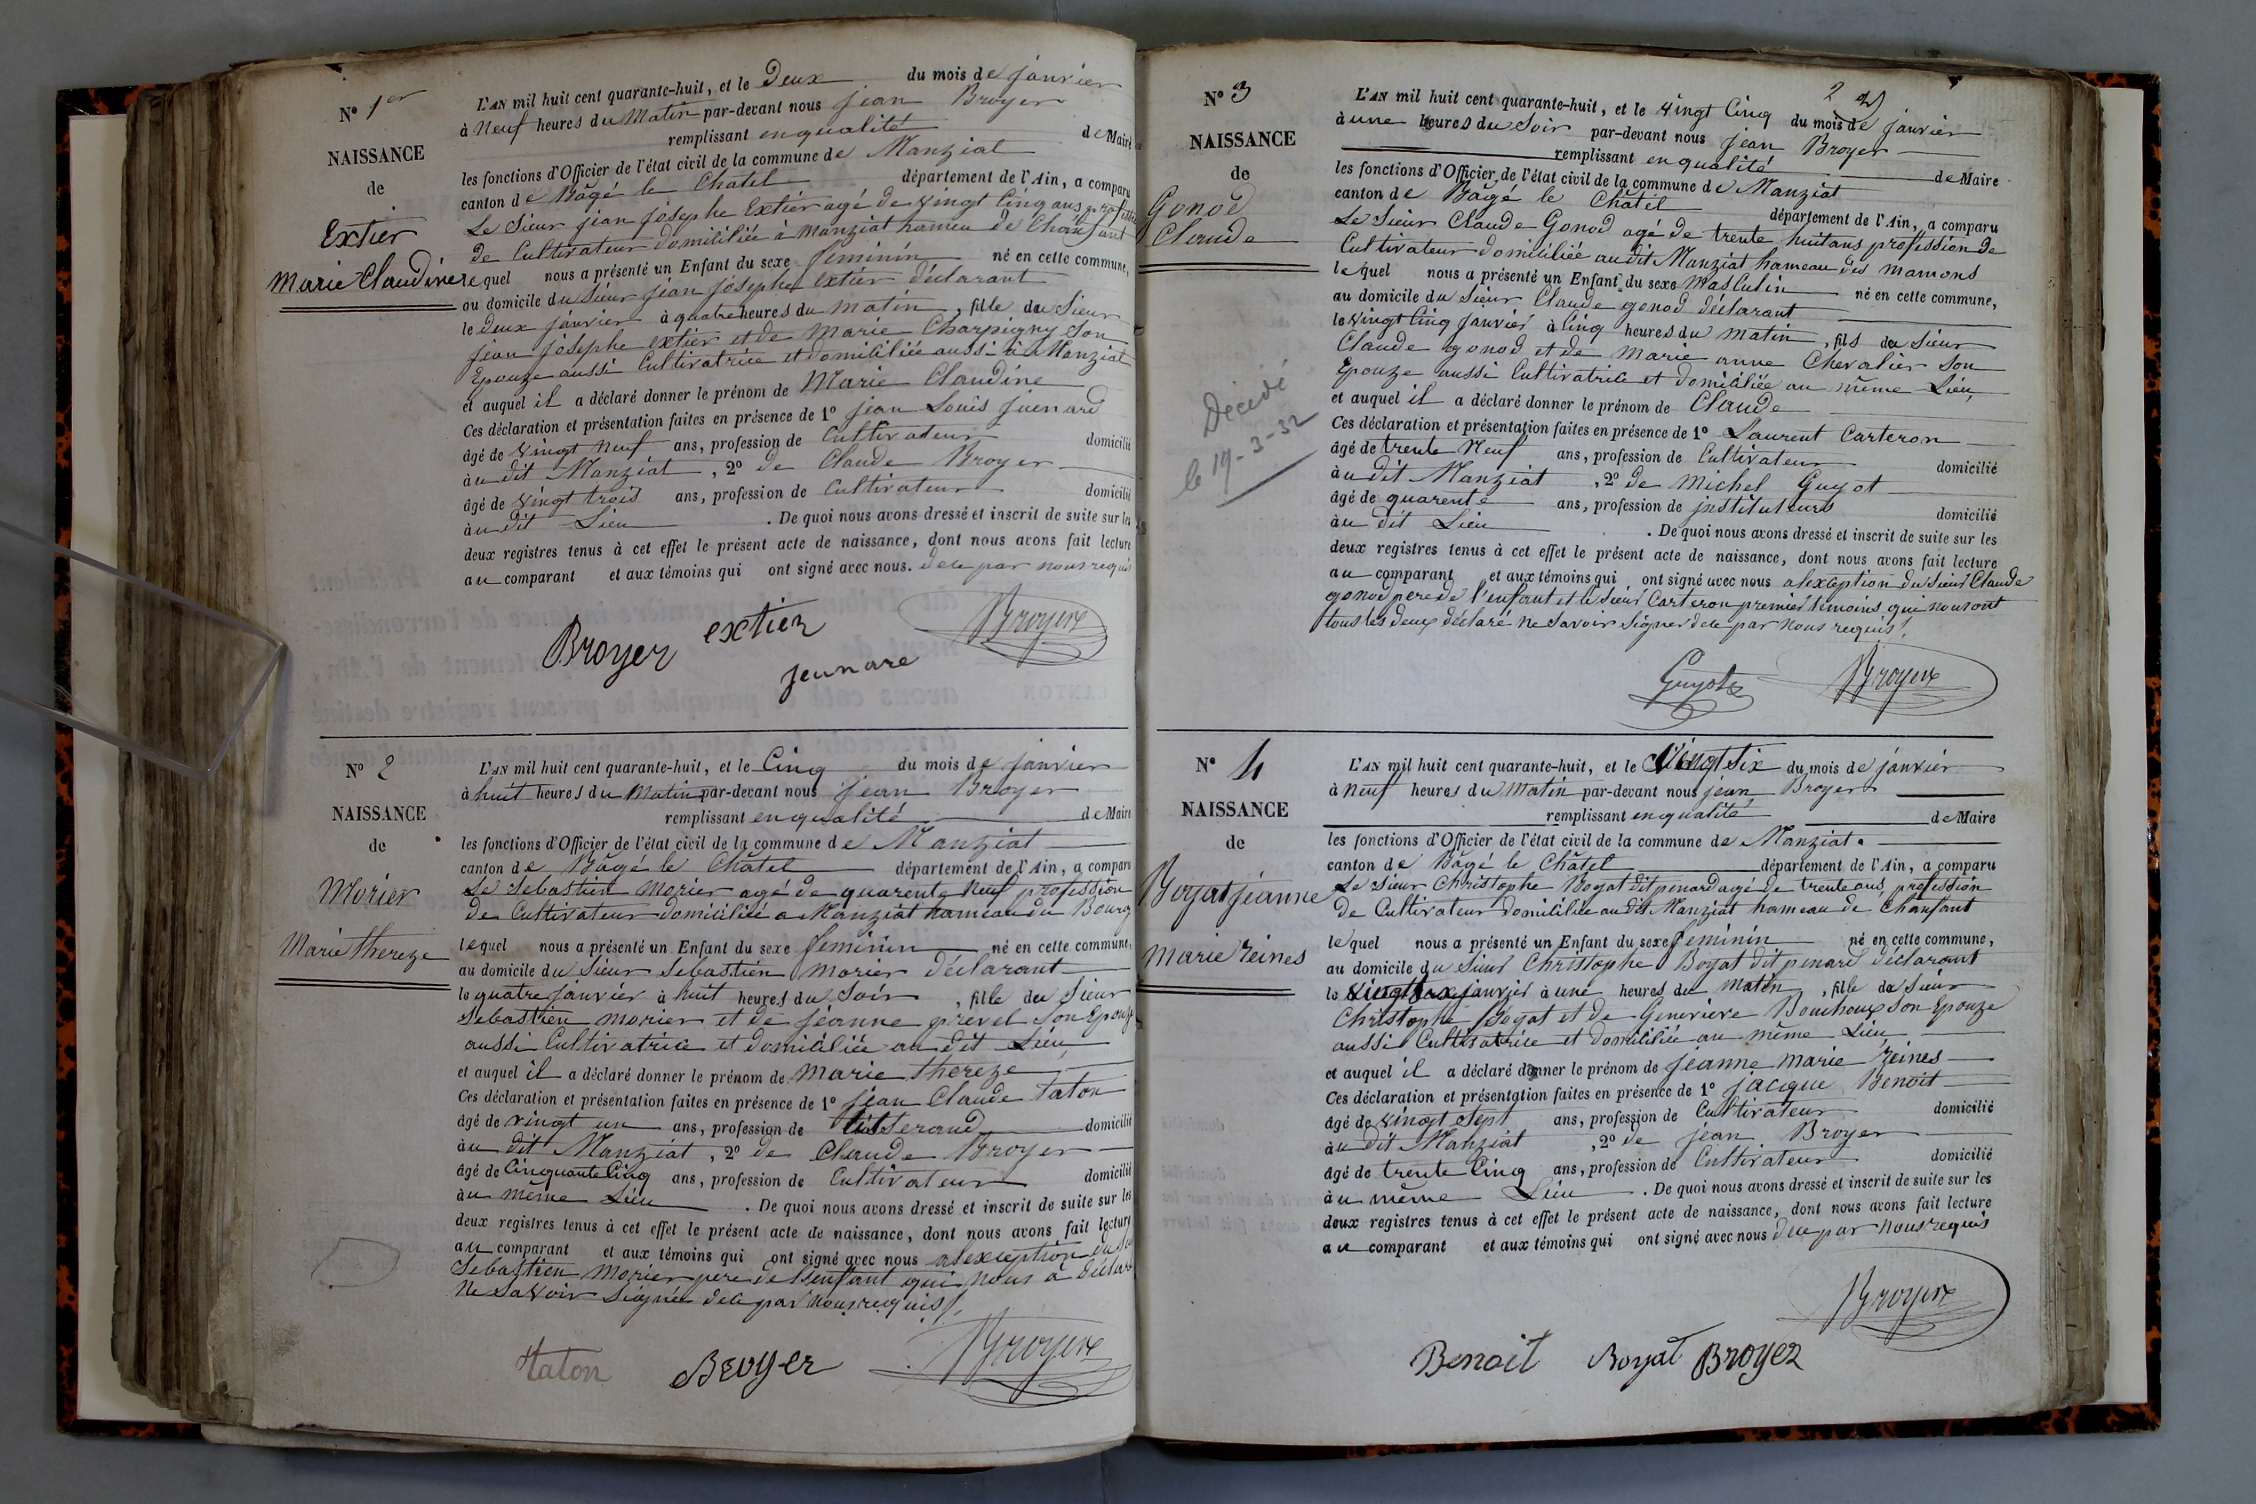 N° 1er
NAISSANCE
de
Extier
Marie Claudine
L'AN mil huit cent quarante-huit, et le Deux du mois de janvier
à Neuf heures du Matin par-devant nous jean Broyer
remplissant en qualité de Maire
les fonctions d'Officier de l'état civil de la commune de Manziat
canton de Bâgé le Châtel département de l'Ain, a comparu
Le Sieur jean josephe Extier agé de vingt Cinq ans profession
de Cultivateur domiciliée à Manziat hameau de Chanfant
lequel nous a présenté un Enfant du sexe feminin né en cette commune,
au domicile du Sieur jean josephe extier déclarant
le deux janvier à quatre heures du matin, fille du Sieur
jean josephe extier et de Marie Charpigny Son
Epouze aussi Cultivatrice et domiciliée aussi à Manziat
et auquel il a déclaré donner le prénom de Marie Claudine
Ces déclaration et présentation faites en présence de 1° jean Louis juenard
âgé de vingt Neuf ans, profession de Cultivateur domicilié
au dit Manziat, 2° de Claude Broyer
âgé de vingt trois ans, profession de Cultivateur domicilié
au dit Lieu. De quoi nous avons dressé et inscrit de suite sur les
deux registres tenus à cet effet le présent acte de naissance, dont nous avons fait lecture
au comparant et aux témoins qui ont signé avec nous. de ce par nous requis
Broyer extier Broyer
jeunare
N° 2
NAISSANCE
de
Morier
Marie thereze
L'AN mil huit cent quarante-huit, et le Cinq du mois de janvier
à huit heures du Matin par-devant nous jean Broyer
remplissant en qualité de Maire
les fonctions d'Officier de l'état civil de la commune de Manziat
canton de Bâgé le Châtel département de l'Ain, a comparu
Le Sebastien Morier agé de quarente Neuf profession
de Cultivateur domiciliée a Manziat hameau du Bourg
lequel nous a présenté un Enfant du sexe feminin né en cette commune,
au domicile du Sieur Sebastien Morier déclarant
le quatre janvier à huit heures du Soir, fille du Sieur
Sebastien morier et de jéanne prevel Son Epouze
aussi Cultivatrice et domiciliée au dit Lieu,
et auquel il a déclaré donner le prénom de Marie thereze
Ces déclaration et présentation faites en présence de 1° jéan Claude taton
âgé de vingt un ans, profession de tisserand domicilié
au dit Manziat, 2° de Claude Broyer
âgé de Cinquante Cinq ans, profession de Cultivateur domicilié
au même Lieu. De quoi nous avons dressé et inscrit de suite sur les
deux registres tenus à cet effet le présent acte de naissance, dont nous avons fait lecture
au comparant et aux témoins qui ont signé avec nous alexception du
Sebastien Morier pere de l'enfant qui nous a déclaré
Ne Savoir Signée de ce par nous requis /.
taton Broyer Broyer
2
N° 3
NAISSANCE
de
Gonod
Claude
Décédé
le 19-3-32
L'AN mil huit cent quarante-huit, et le vingt Cinq du mois de janvier
à une heures du Soir par-devant nous jean Broyer
remplissant en qualité de Maire
les fonctions d'Officier de l'état civil de la commune de Manziat
canton de Bâgé le Châtel département de l'Ain, a comparu
Le Sieur Claude Gonod agé de trente huit ans profession de
Cultivateur domiciliée au dit Manziat hameau des mamons
lequel nous a présenté un Enfant du sexe Masculin né en cette commune,
au domicile du Sieur Claude gonod déclarant
le vingt Cinq janvier à Cinq heures du matin, fils du Sieur
Claude gonod et de Marie anne Chevalier Son
Epouze aussi Cultivatrice et domiciliée au même Lieu,
et auquel il a déclaré donner le prénom de Claude
Ces déclaration et présentation faites en présence de 1° Laurent Carteron
âgé de trente Neuf ans, profession de Cultivateur domicilié
au dit Manziat, 2° de Michel Guyot
âgé de quarente ans, profession de instituteurs domicilié
au dit Lieu. De quoi nous avons dressé et inscrit de suite sur les
deux registres tenus à cet effet le présent acte de naissance, dont nous avons fait lecture
au comparant et aux témoins qui ont signé avec nous alexception du Sieur Claude
gonod pere de l'enfant et le Sieur Carteron premier temoins qui nous ont
tous les deux déclaré ne Savoir Signer de ce par nous requis /.
Guyot Broyer
N° 4
NAISSANCE
de
Boyat jéanne
Marie reines
L'AN mil huit cent quarante-huit, et le Vingt Six du mois de janvier
à Neuf heures du Matin par-devant nous jean Broyer
remplissant en qualité de Maire
les fonctions d'Officier de l'état civil de la commune de Manziat.
canton de Bâgé le Châtel département de l'Ain, a comparu
Le Sieur Christophe Boyat dit penard agé de trente ans, profession
de Cultivateur domiciliée au dit Manziat hameau de Chanfant
lequel nous a présenté un Enfant du sexe feminin né en cette commune,
au domicile du Sieur Christophe Boyat dit penard déclarant
le vingt six janvier à une heures du matin, fille du Sieur
Christophe Boyat et de Genevieve Bouchoux Son Epouze
aussi Cultivatrice et domiciliée au même Lieu,
et auquel il a déclaré donner le prénom de jeanne marie reines
Ces déclaration et présentation faites en présence de 1° jacque Benoit
âgé de vingt Sept ans, profession de Cultivateur domicilié
au dit Manziat, 2° de jean Broyer
âgé de trente Cinq ans, profession de Cultivateur domicilié
au même Lieu. De quoi nous avons dressé et inscrit de suite sur les
deux registres tenus à cet effet le présent acte de naissance, dont nous avons fait lecture
au comparant et aux témoins qui ont signé avec nous de ce par nous requis
Broyer
Benoit Boyat Broyer